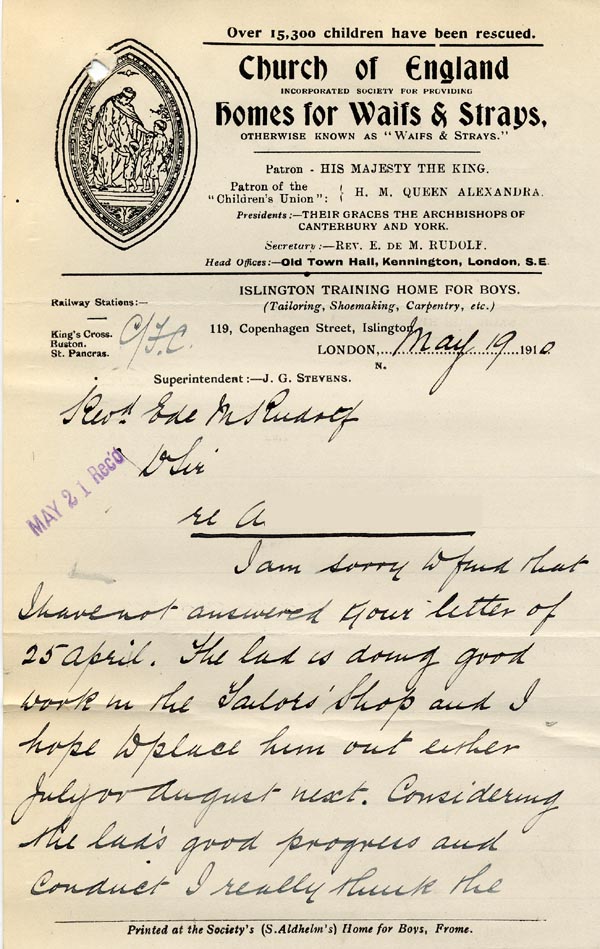 Over 15,300 children have been rescued.
Church of England
INCORPORATED SOCIETY FOR PROVIDING
Homes for Waifs & Strays,
OTHERWISE KNOWN AS "WAIFS & STRAYS."
Patron - HIS MAJESTY THE KING.
Patron of the "Children's Union": { H. M. QUEEN ALEXANDRA.
Presidents:—THEIR GRACES THE ARCHBISHOPS OF
CANTERBURY AND YORK.
Secretary:—REV. E. DE M. RUDOLF.
Head Offices:—Old Town Hall, Kennington, London, S.E.
ISLINGTON TRAINING HOME FOR BOYS.
(Tailoring, Shoemaking, Carpentry, etc.)
Railway Stations:—
King's Cross.
Euston.
St. Pancras.
119, Copenhagen Street, Islington
LONDON,... May 19 ...1910
N.
Superintendent:—J. G. STEVENS.
Revd. E de M Rudolf
MAY 21 Rec'd
D Sir
re A
I am sorry to find that
I have not answered your letter of
25 April. The lad is doing good
work in the Tailors' Shop and I
hope to place him out either
July or August next. Considering
the lad's good progress and
conduct I really think the
Printed at the Society's (S. Aldhelm's) Home for Boys, Frome.